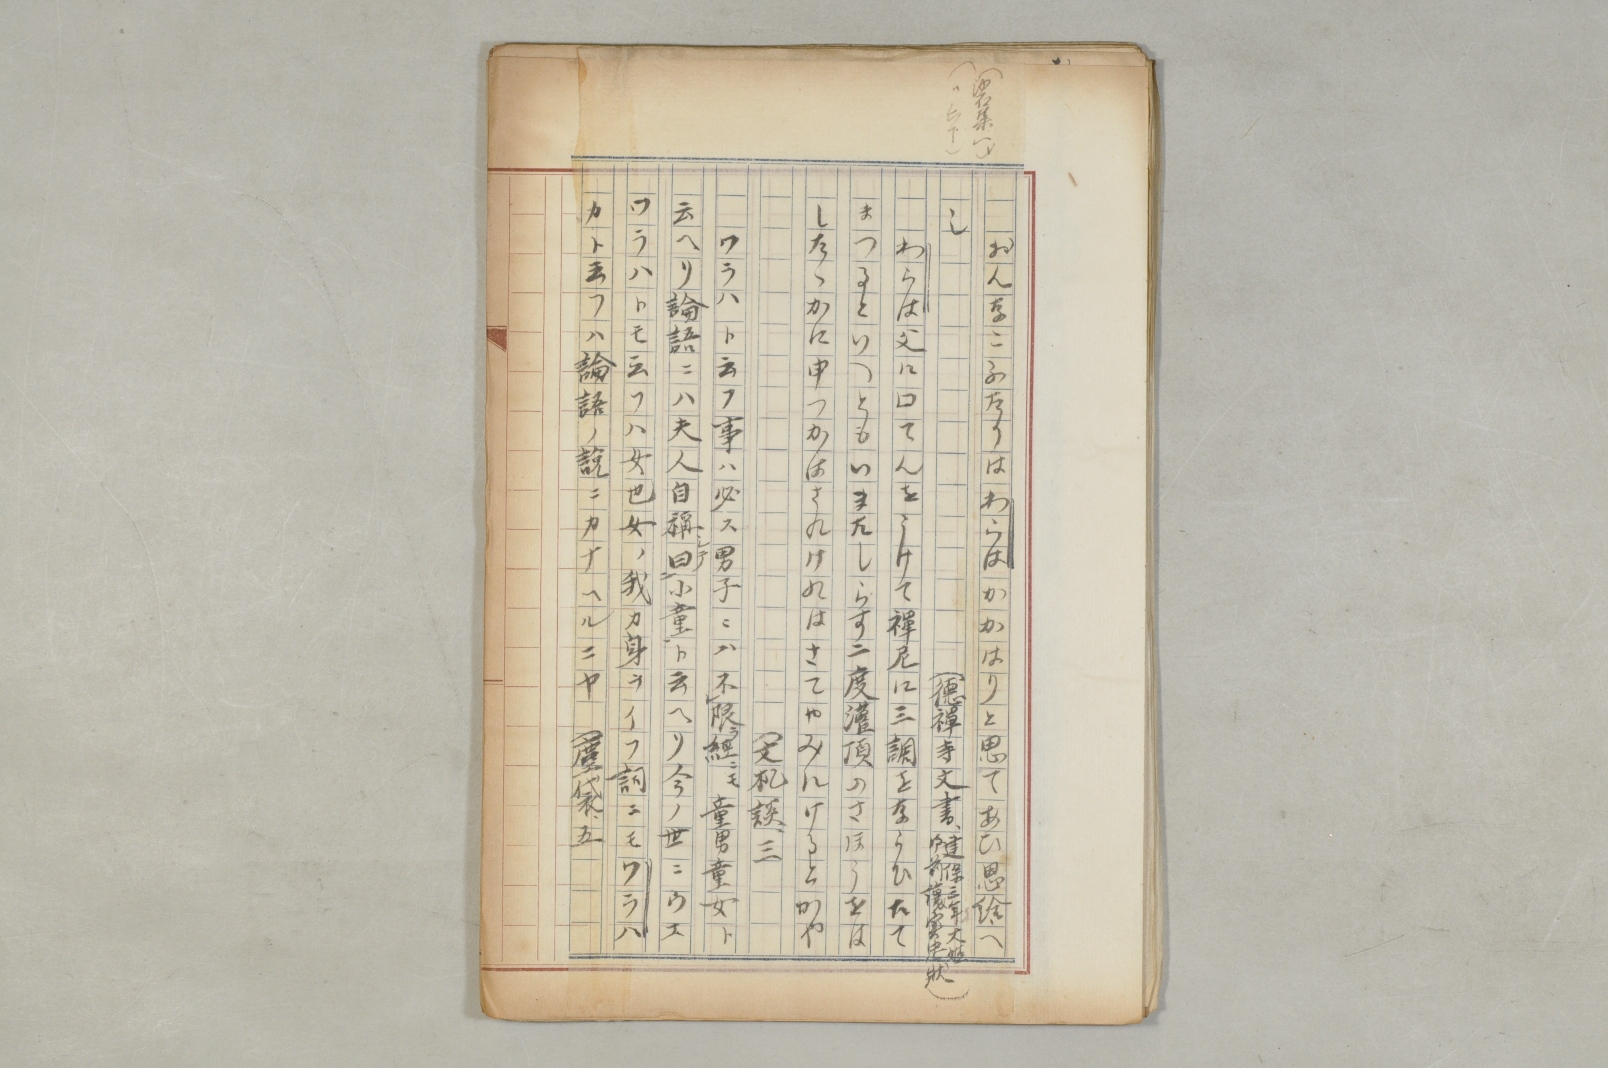 (沙石集一ノ
おんなこふたりはわらはかかはりと思てあひ思給へ
し
(徳禅寺文書、建保三年大姫御前譲実忠状)
わらは父に口てんをうけて禪尼に三調をならひたて
まつるといへともいまたしらす二度灌頂のさほうをは
したゝかに申つかはされけれはさてやみにけるとかや
(文机談、三
ワラハト云フ事ハ必ス男子ニハ不限ラ經ニモ童男童女ト
云ヘリ論語ニハ夫人自稱シテ曰小童ト云ヘリ今ノ世ニウエ
ワラハトモ云フハ女也女ノ我カ身ヲイフ詞ニモワラハ
カト云フハ論語ノ說ニカナヘルニヤ (塵袋、五